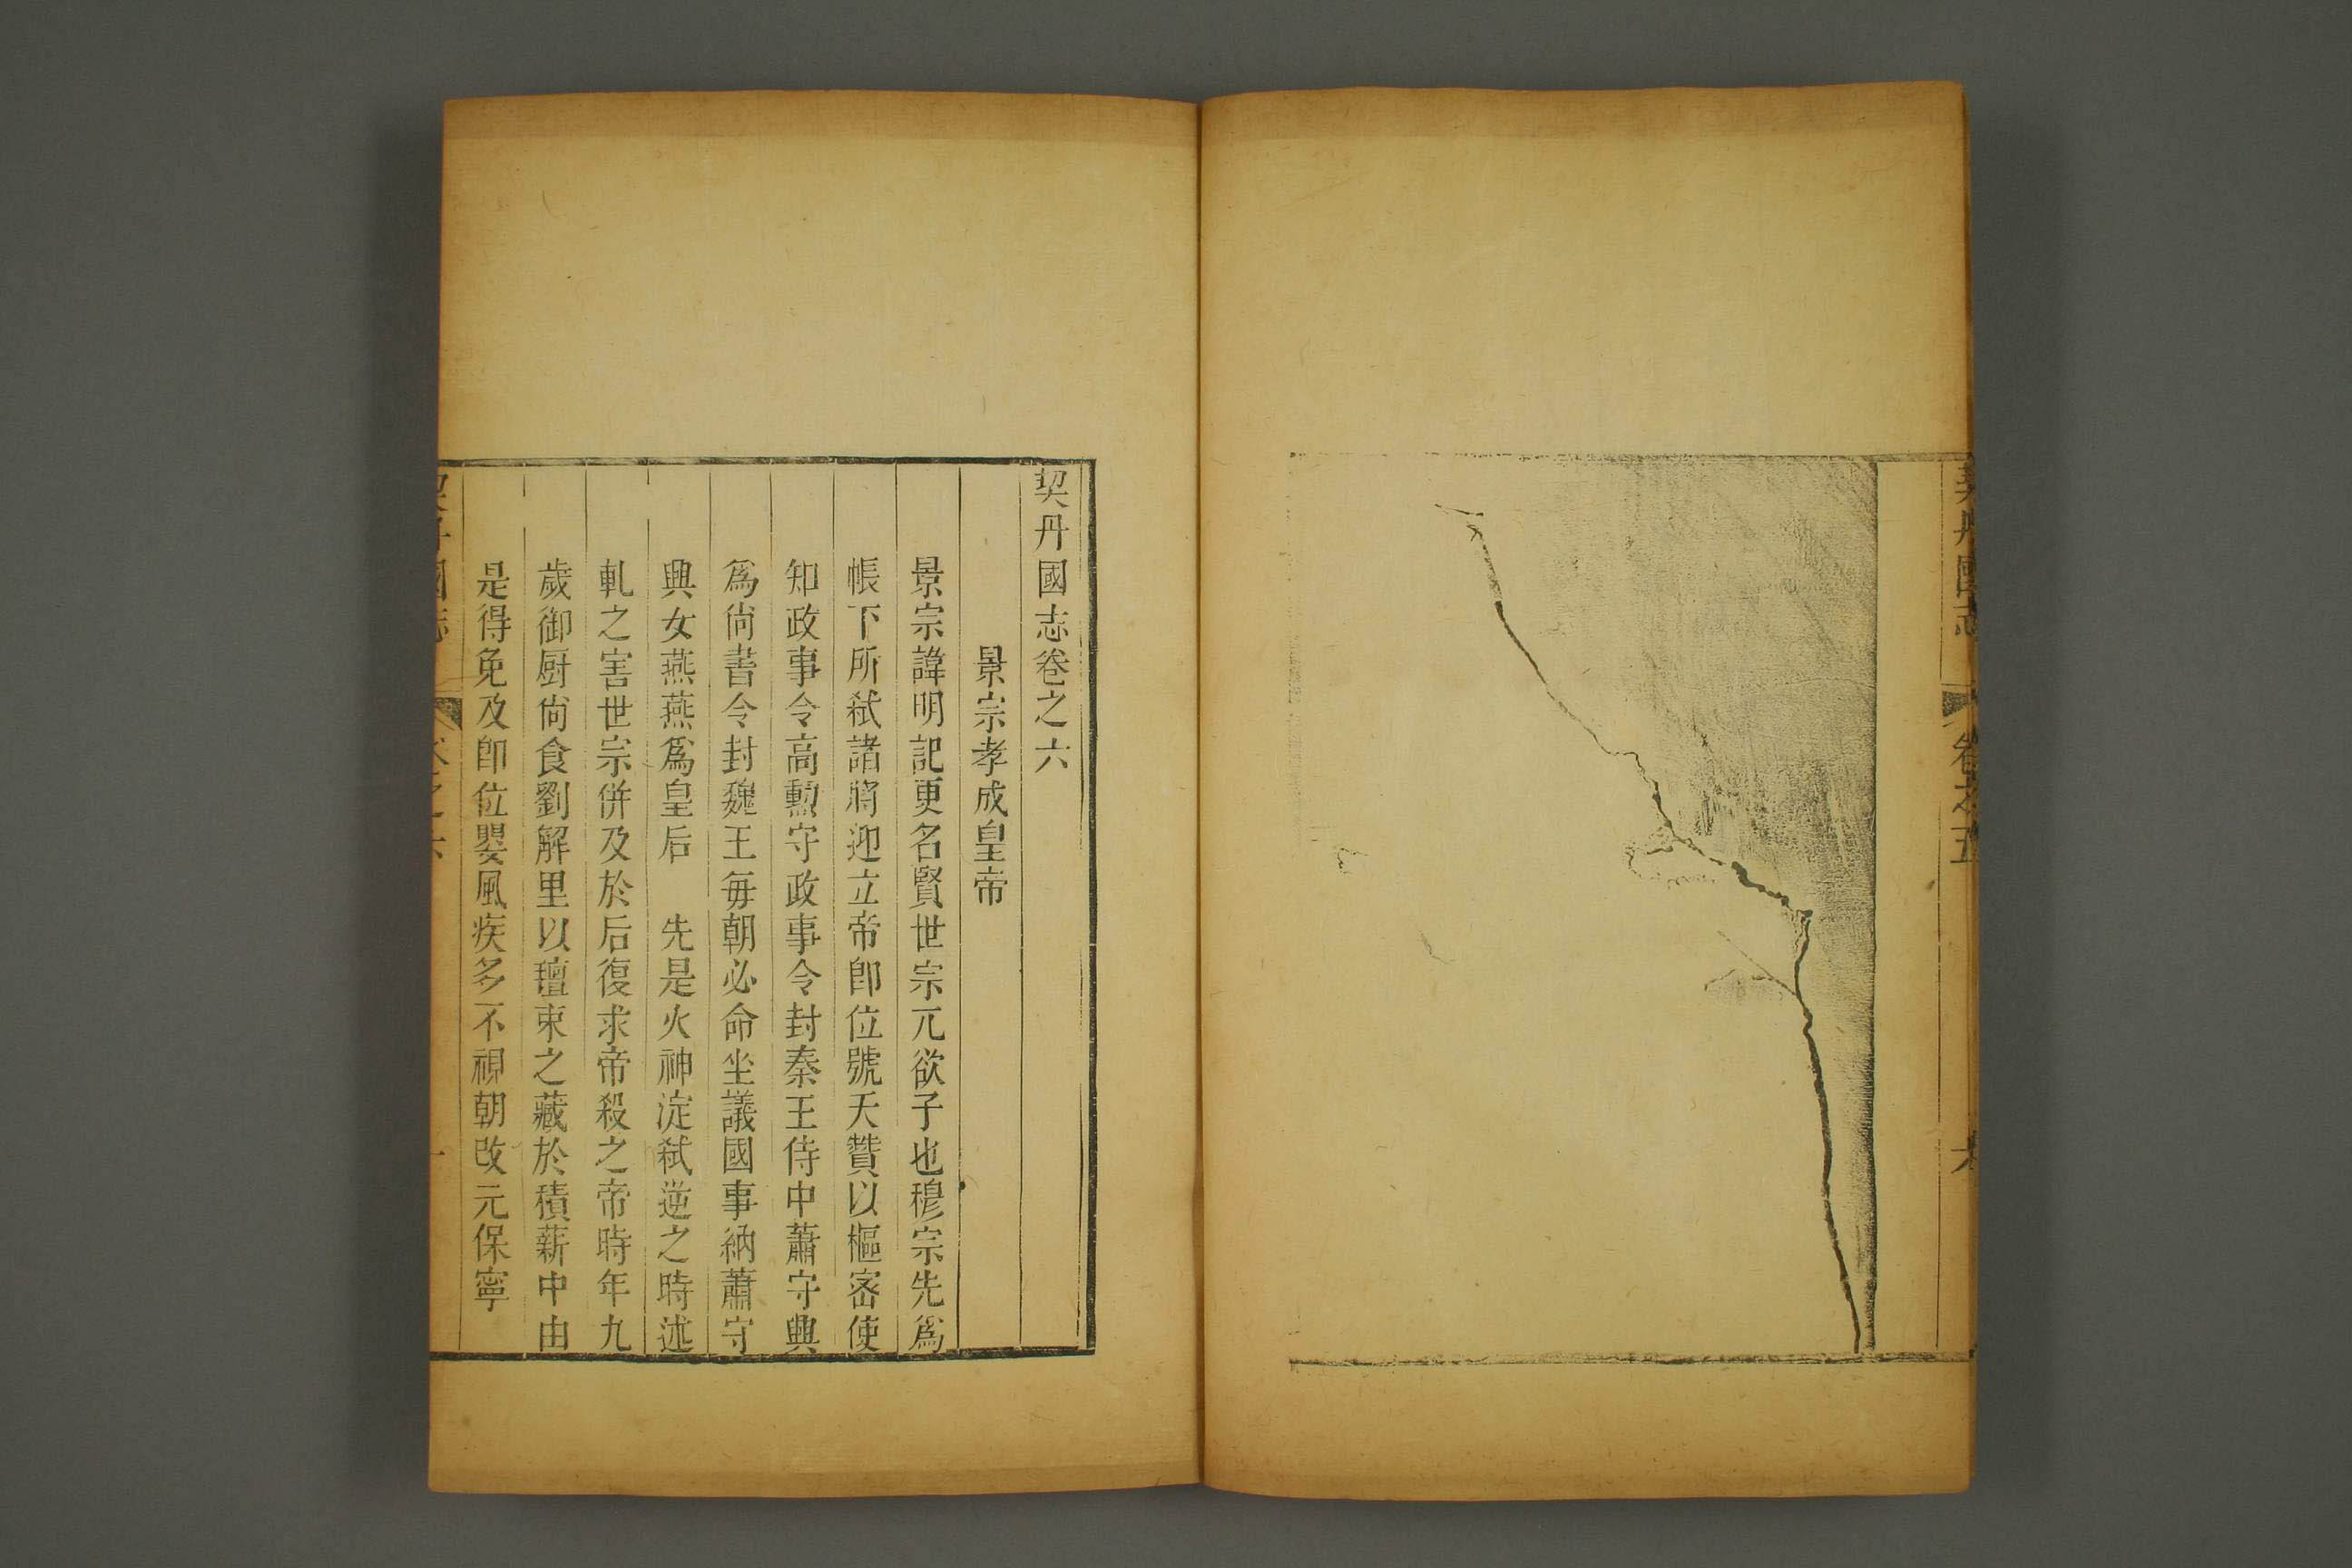 契丹國志
卷之五
六
契丹國志卷之六
景宗孝成皇帝
景宗諱明記更名賢世宗兀欲子也穆宗先為
帳下所弒諸將迎立帝卽位號天贊以樞密使
知政事令高勳守政事令封秦王侍中蕭守興
爲尙書令封魏王每朝必命坐議國事納蕭守
興女燕燕爲皇后　先是火神淀弒逆之時述
軋之害世宗併及於后復求帝殺之帝時年九
歲御厨尙食劉解里以氊束之藏於積薪中由
是得免及卽位嬰風疾多不視朝改元保寧
契丹國志
卷之六
一